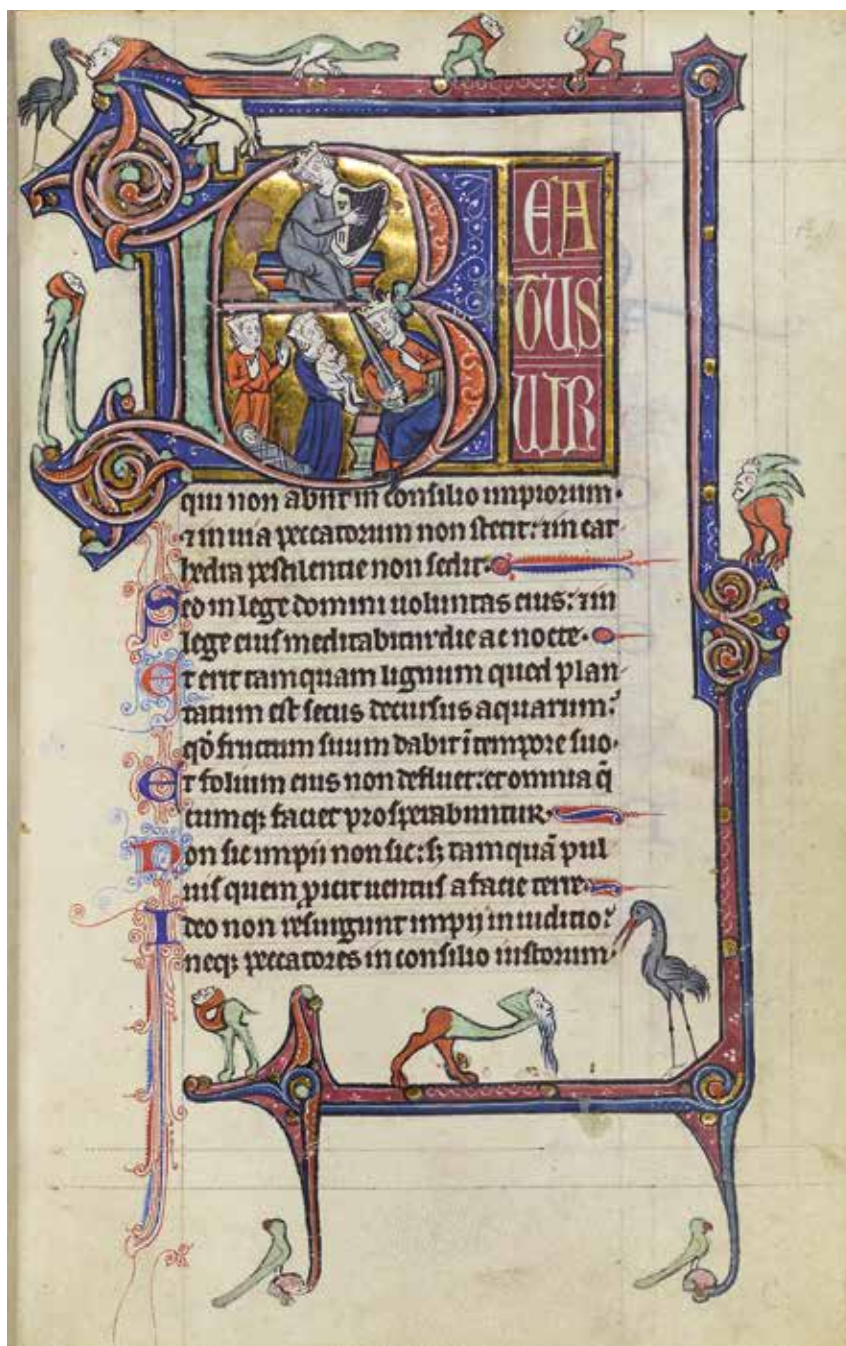 B
EA
TUS
UIR
qui non abiit in consilio impiorum.
⁊ in uia peccatorum non stetit: ⁊ in cat
hedra pestilentie non sedit.
Sed in lege domini uoluntas eius: ⁊ in
lege eius meditabitur die ac nocte.
Et erit tamquam lignum quod plan
tatum est secus decursus aquarum:
qđ fructum suum dabit ĩ tempore suo.
Et folium eius non defluet: et omnia q̃
cumqꝫ faciet prosperabuntur.
Non sic impii non sic: sꝫ tamquã pul
uis quem ꝓicit uentus a facie terre.
Ideo non resurgunt impij in iuditio:
neqꝫ peccatores in consilio iustorum.